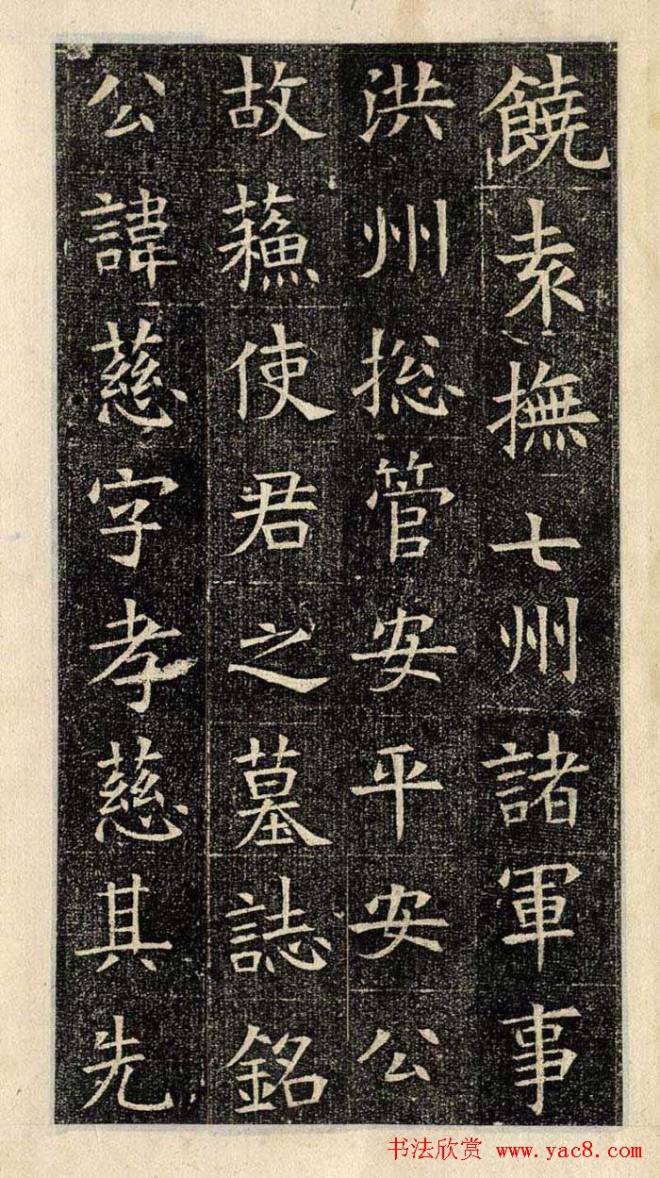 饒袁撫七州諸軍事
洪州捴管安平安公
故蘓使君之墓誌銘
公諱慈字孝慈其先
书法欣赏 www.yac8.com